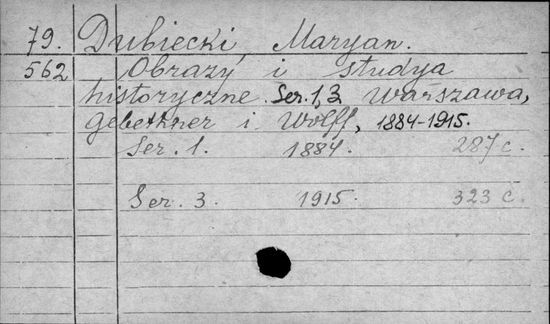 79. Dubiecki, Maryan.
562 Obrazy i studya
historyczne. Ser. 1,3 Warszawa,
gebethner i Wolff, 1884-1915.
Ser. 1. 1884. 287 c.
Ser. 3. 1915. 323 c.